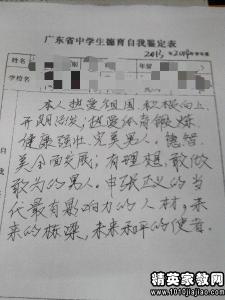 广东省中学生德育自我鉴定表
姓名
年龄
学校名
本人热爱祖国 积极向上
开朗活泼,热爱体育锻炼
健康强壮,完美男人。德智
美全面发展,有理想敢做
敢为的男人。申张正义的当
代最有影响力的人材,未
来的栋梁,未来和平的使者。
自
我
精英家教网
www.1010jiajiao.com